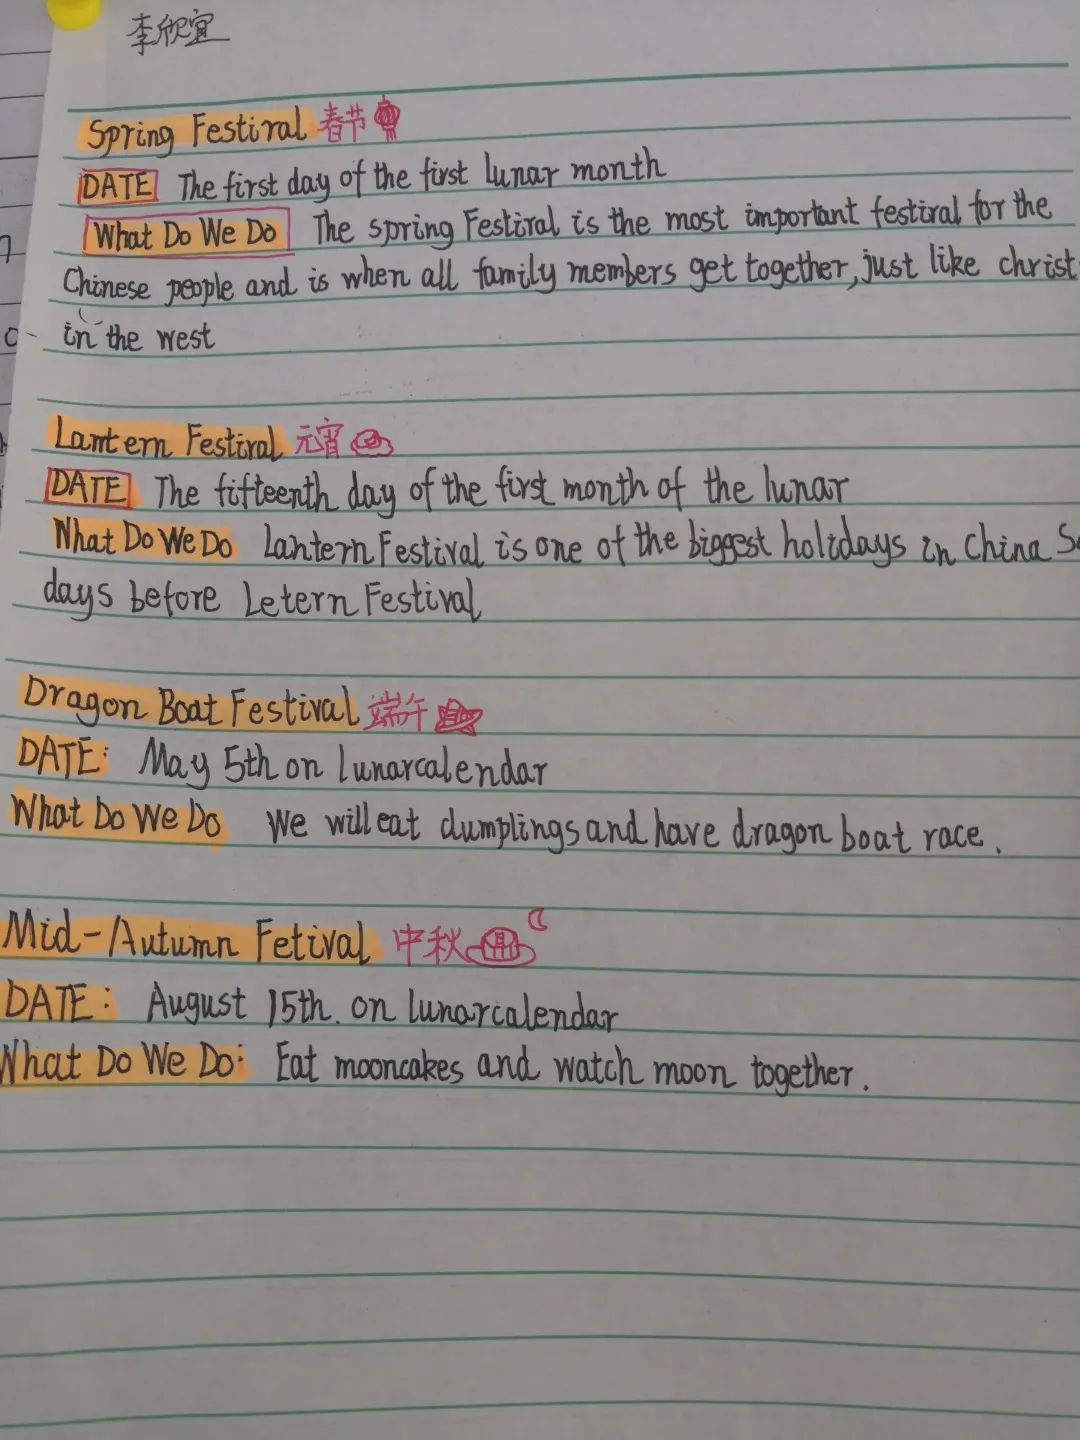 李欣宜
Spring Festival 春节
DATE The first day of the first lunar month
What Do We Do The spring Festival is the most important festival for the
Chinese people and is when all family members get together, just like christ
in the west
Lantern Festival 元宵
DATE The fifteenth day of the first month of the lunar
What Do We Do Lantern Festival is one of the biggest holidays in China
days before Letern Festival
Dragon Boat Festival 端午
DATE: May 5th on lunarcalendar
What Do We Do We will eat dumplings and have dragon boat race.
Mid-Autumn Fetival 中秋
DATE: August 15th. on lunarcalendar
What Do We Do: Eat mooncakes and watch moon together.